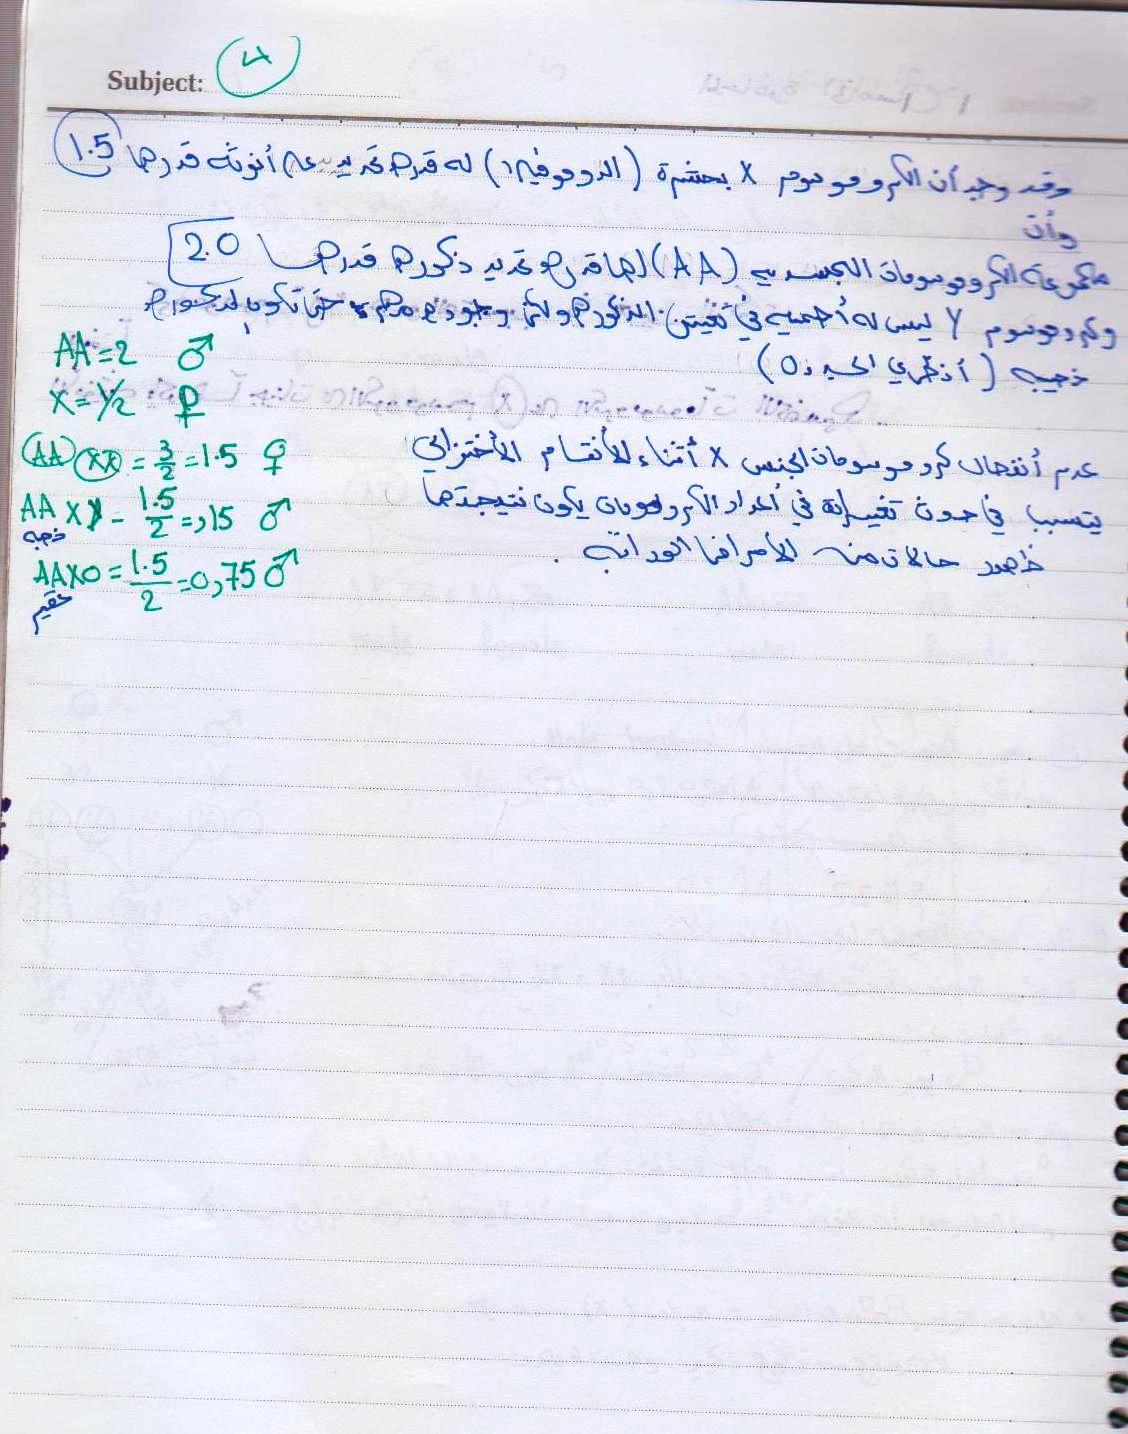 Subject: 4
وقد وجد أن الكروموسوم X بحشرة (الدروفيلا) له قدره تحديديه أنوثه قدرها 1.5
وأن
مجموعة الكروموسومات الجسديه (AA) لها قدره تحديد ذكوره قدرها 2.0
وكروموسوم Y ليس له أهميه في تعيين الذكوره ولكن وجوده مهم حتى تكون الذكوره
خصبه (أنظري الجدول)
AA = 2 ♂
X = 1/2 ♀
(AA) (XX) = 3/2 = 1.5 ♀
AA X Y = 1.5/2 = ,15 ♂
خصبه
AAXO = 1.5/2 = 0,75 ♂
عقيم
عدم أنفصال كروموسومات الجنس X أثناء الأنقسام الأختزالي
يتسبب في حدوث تغييرات في أعداد الكروموسومات يكون نتيجتها
ظهور حالات من الأمراض الوراثيه .